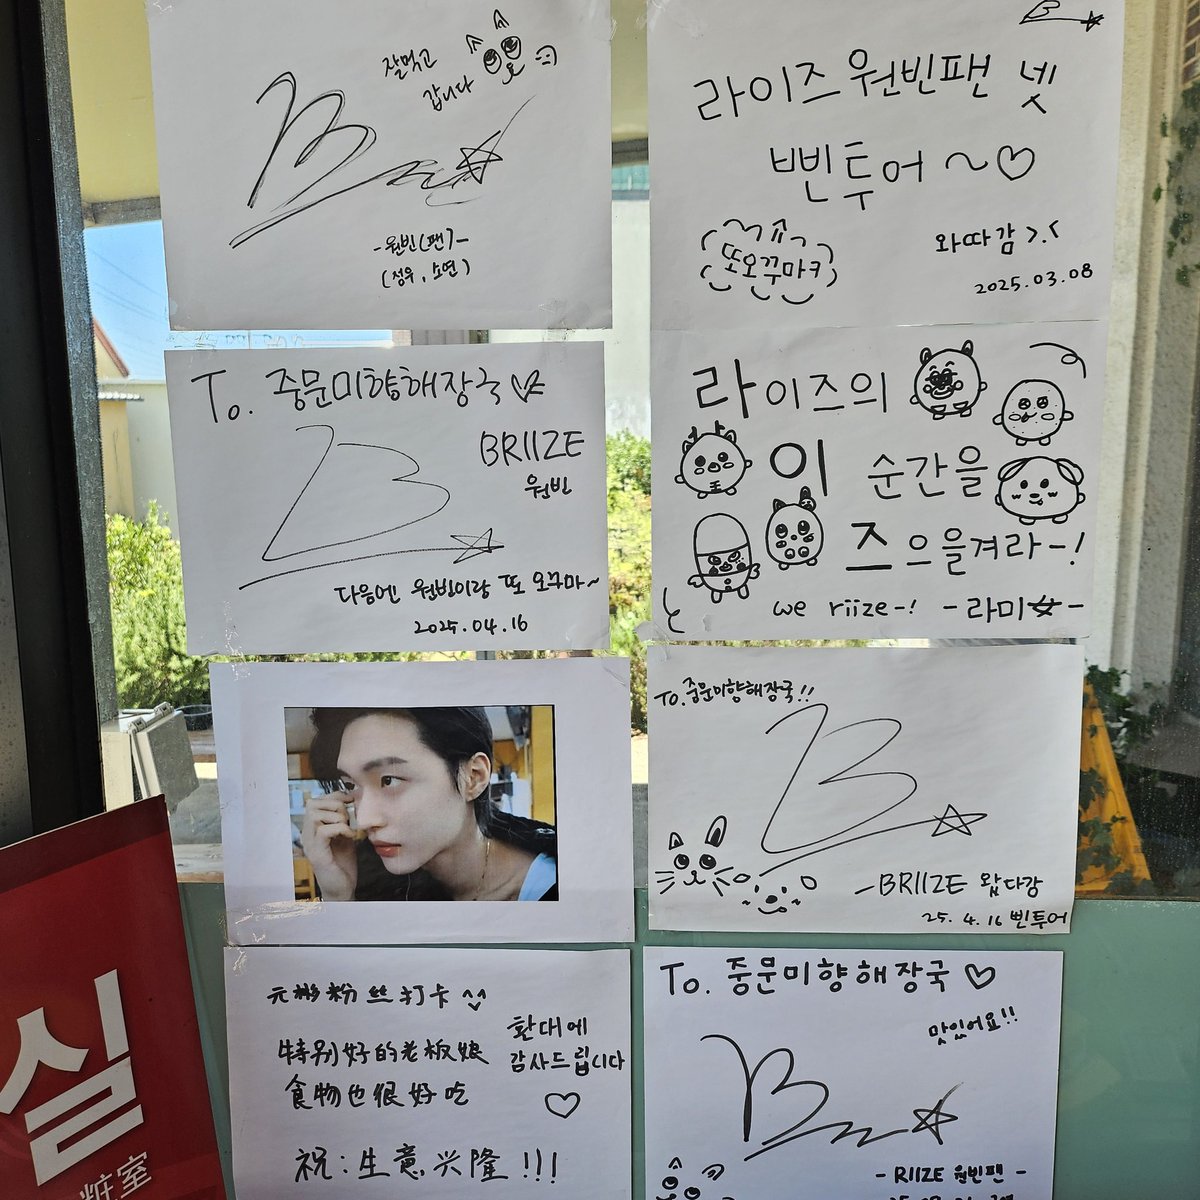 잘먹고
갑니다
-원빈(팬)-
(정우, 소연)
라이즈 원빈팬 넷
삔투어 ~♡
또오꾸마ㅋ
와따감 >.<
2025.03.08
To. 중문미향해장국
BRIIZE
원빈
다음엔 원빈이랑 또 오꾸마~
2025.04.16
라이즈의
이 순간을
즈으을겨라-!
we riize-! -라미☆-
To.중문미향해장국!!
-BRIIZE 왔다감
25.4.16 삔투어
元彬粉丝打卡 ^^
特别好的老板娘
食物也很好吃
환대에
감사드립니다
♡
祝:生意兴隆!!!
To. 중문미향해장국 ♡
맛있어요!!
- RIIZE 원빈팬 -
실
粧室